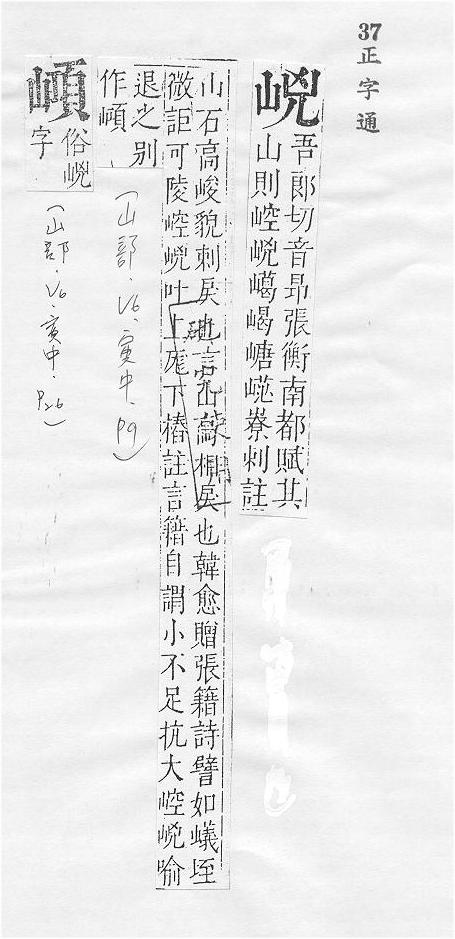 37正字通
㟅
吾郎切音昂張衡南都賦其
山則崆㟅嶱嵑嵣㟐嶚剌註
山石高峻貌刺戾也言山高相戾也韓愈贈張籍詩譬如蟻垤
微詎可陵崆㟅叶上厖下樁註言籍自謂小不足抗大崆㟅喻
退之别
作
(山部.V6.寅中.P9)
俗㟅
字
(山部.V6.寅中.P26)